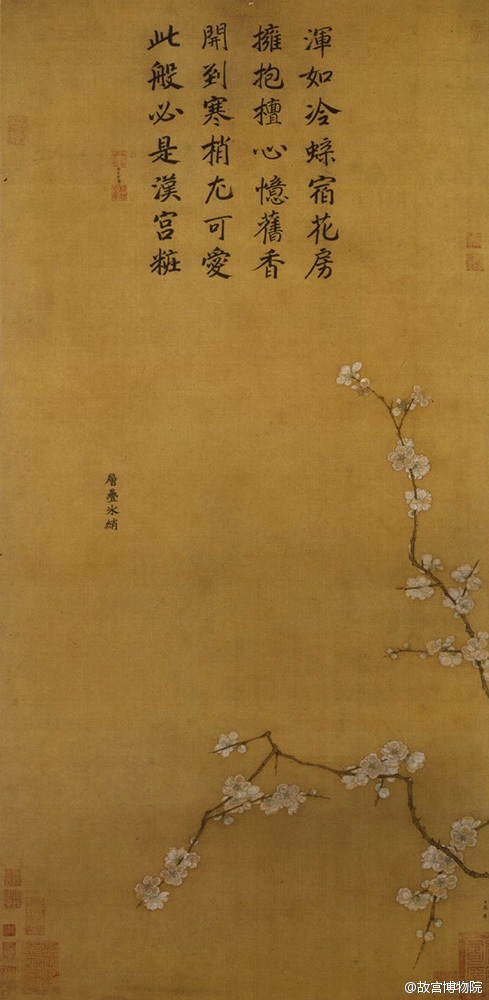 渾如冷蜨宿花房
擁抱檀心憶舊香
開到寒梢尤可愛
此般必是漢宮粧
層疊冰綃
@故宫博物院